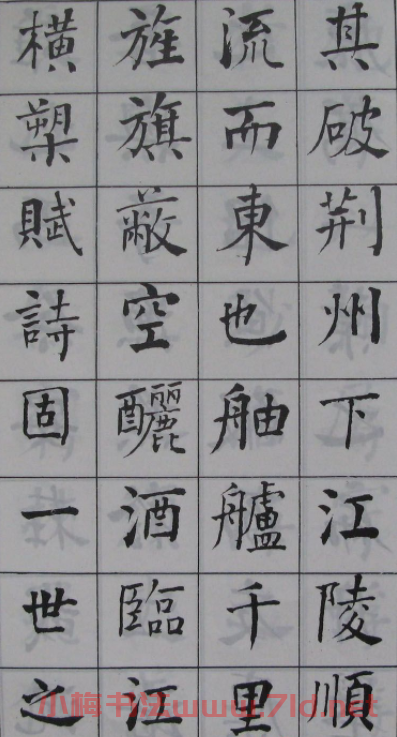 其破荆州下江陵順
流而東也舳艫千里
旌旗蔽空釃酒臨江
橫槊賦詩固一世之
小梅书法www.7ld.net